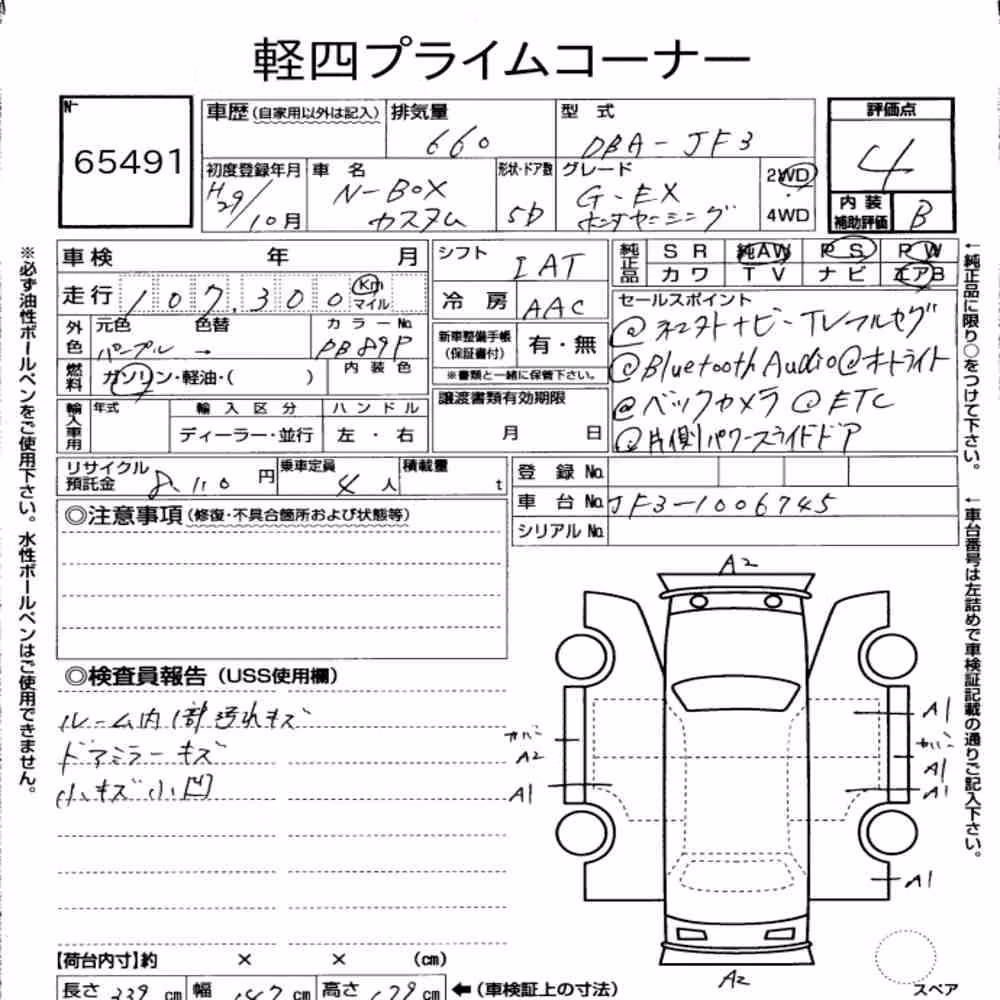 軽四プライムコーナー
No.
65491
車歴 (自家用以外は記入)
排気量
660
型式
DBA-JF3
評価点
4
初度登録年月
H29/10月
車名
N-BOX
カスタム
形状・ドア数
5D
グレード
G-EX
ホンダセンシング
2WD
4WD
内装
補助評価
B
車検 年 月
走行 107,300 Km マイル
シフト
IAT
冷房
AAC
純正品
SR 純AW PS PW
カワ TV ナビ エアB
外色
元色 色替
パープル →
カラーNo.
PB89P
燃料
ガソリン・軽油・( )
内装色
新車整備手帳
(保証書付)
有・無
※書類と一緒に保管下さい。
セールスポイント
@コネクトナビ-TVフルセグ
@Bluetooth Audio@オートライト
@バックカメラ @ETC
@片側パワースライドドア
輸入車用
年式
輸入区分
ハンドル
ディーラー・並行
左・右
譲渡書類有効期限
月 日
リサイクル
預託金
8,110 円
乗車定員
4 人
積載量
t
登録No.
車台No. JF3-1006745
シリアルNo.
◎注意事項 (修復・不具合箇所および状態等)
◎検査員報告 (USS使用欄)
ルーム内1部汚れキズ
ドアミラーキズ
小キズ小凹
A2
A1
カバー
A2
カバー
A1
A1
A1
A1
A2
スペア
【荷台内寸】約 × × (cm)
長さ 339 cm 幅 147 cm 高さ 179 cm
←(車検証上の寸法)
※必ず油性ボールペンをご使用下さい。水性ボールペンはご使用できません。
←純正品に限り○をつけて下さい。
←車台番号は左詰めで車検証記載の通りご記入下さい。